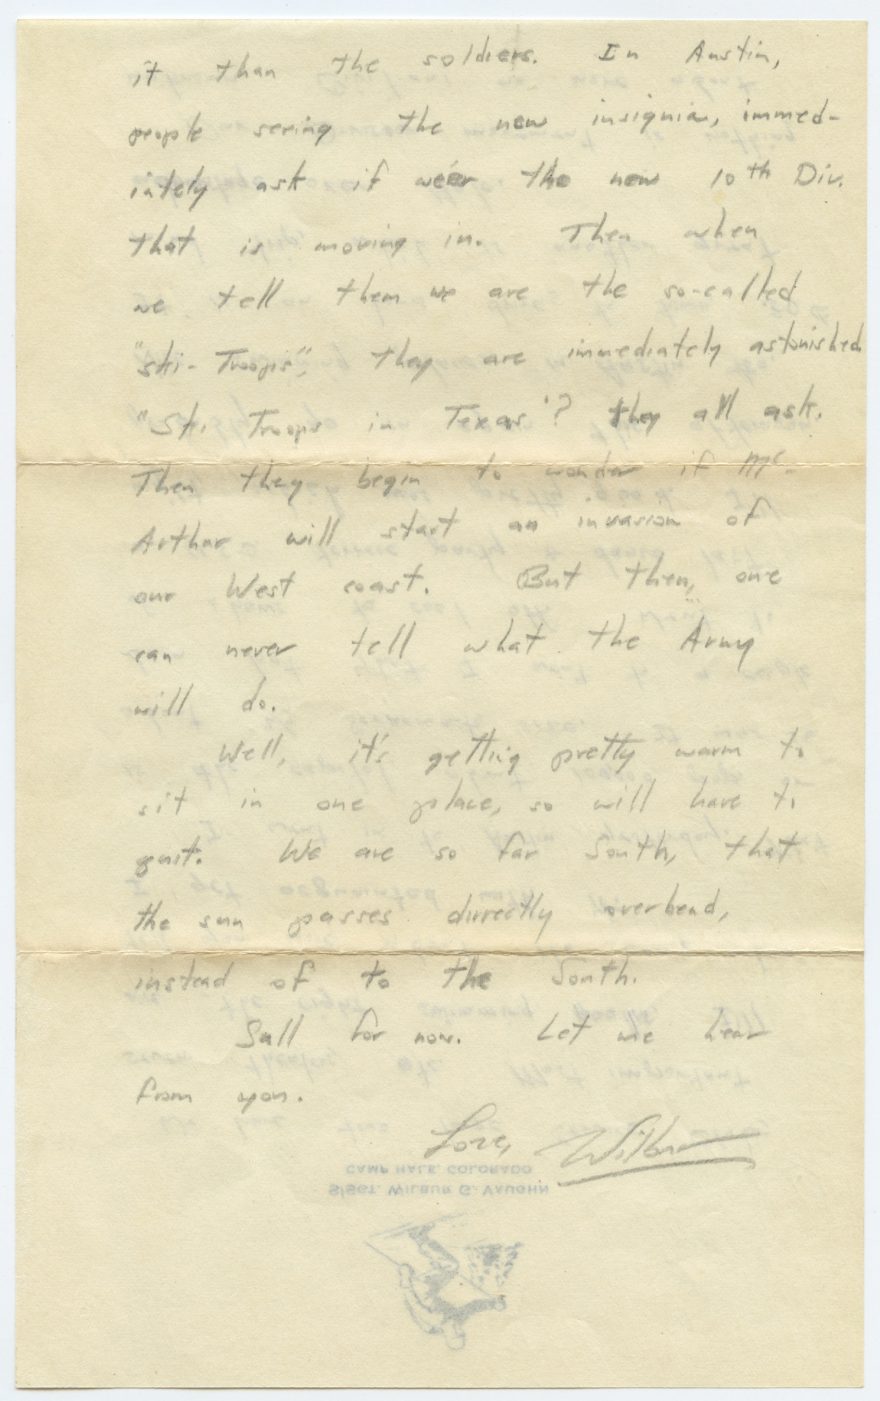 it than the soldiers. In Austin,
people seeing the new insignia, immed-
iately ask if we'er the new 10th Div.
that is moving in. Then when
we tell them we are the so-called
"Ski-Troops", they are immediately astonished
"Ski Troops in Texas"? they all ask.
Then they begin to wonder if Mc-
Arthur will start an invasion of
our West coast. But then, one
can never tell what the Army
will do.
Well, it's getting pretty warm to
sit in one place, so will have to
quit. We are so far South, that
the sun passes directly overhead,
instead of to the South.
Sall for now. Let me hear
from you.
Love, Wilbur
CAMP HALE, COLORADO
S/SGT. WILBUR G. VAUGHN